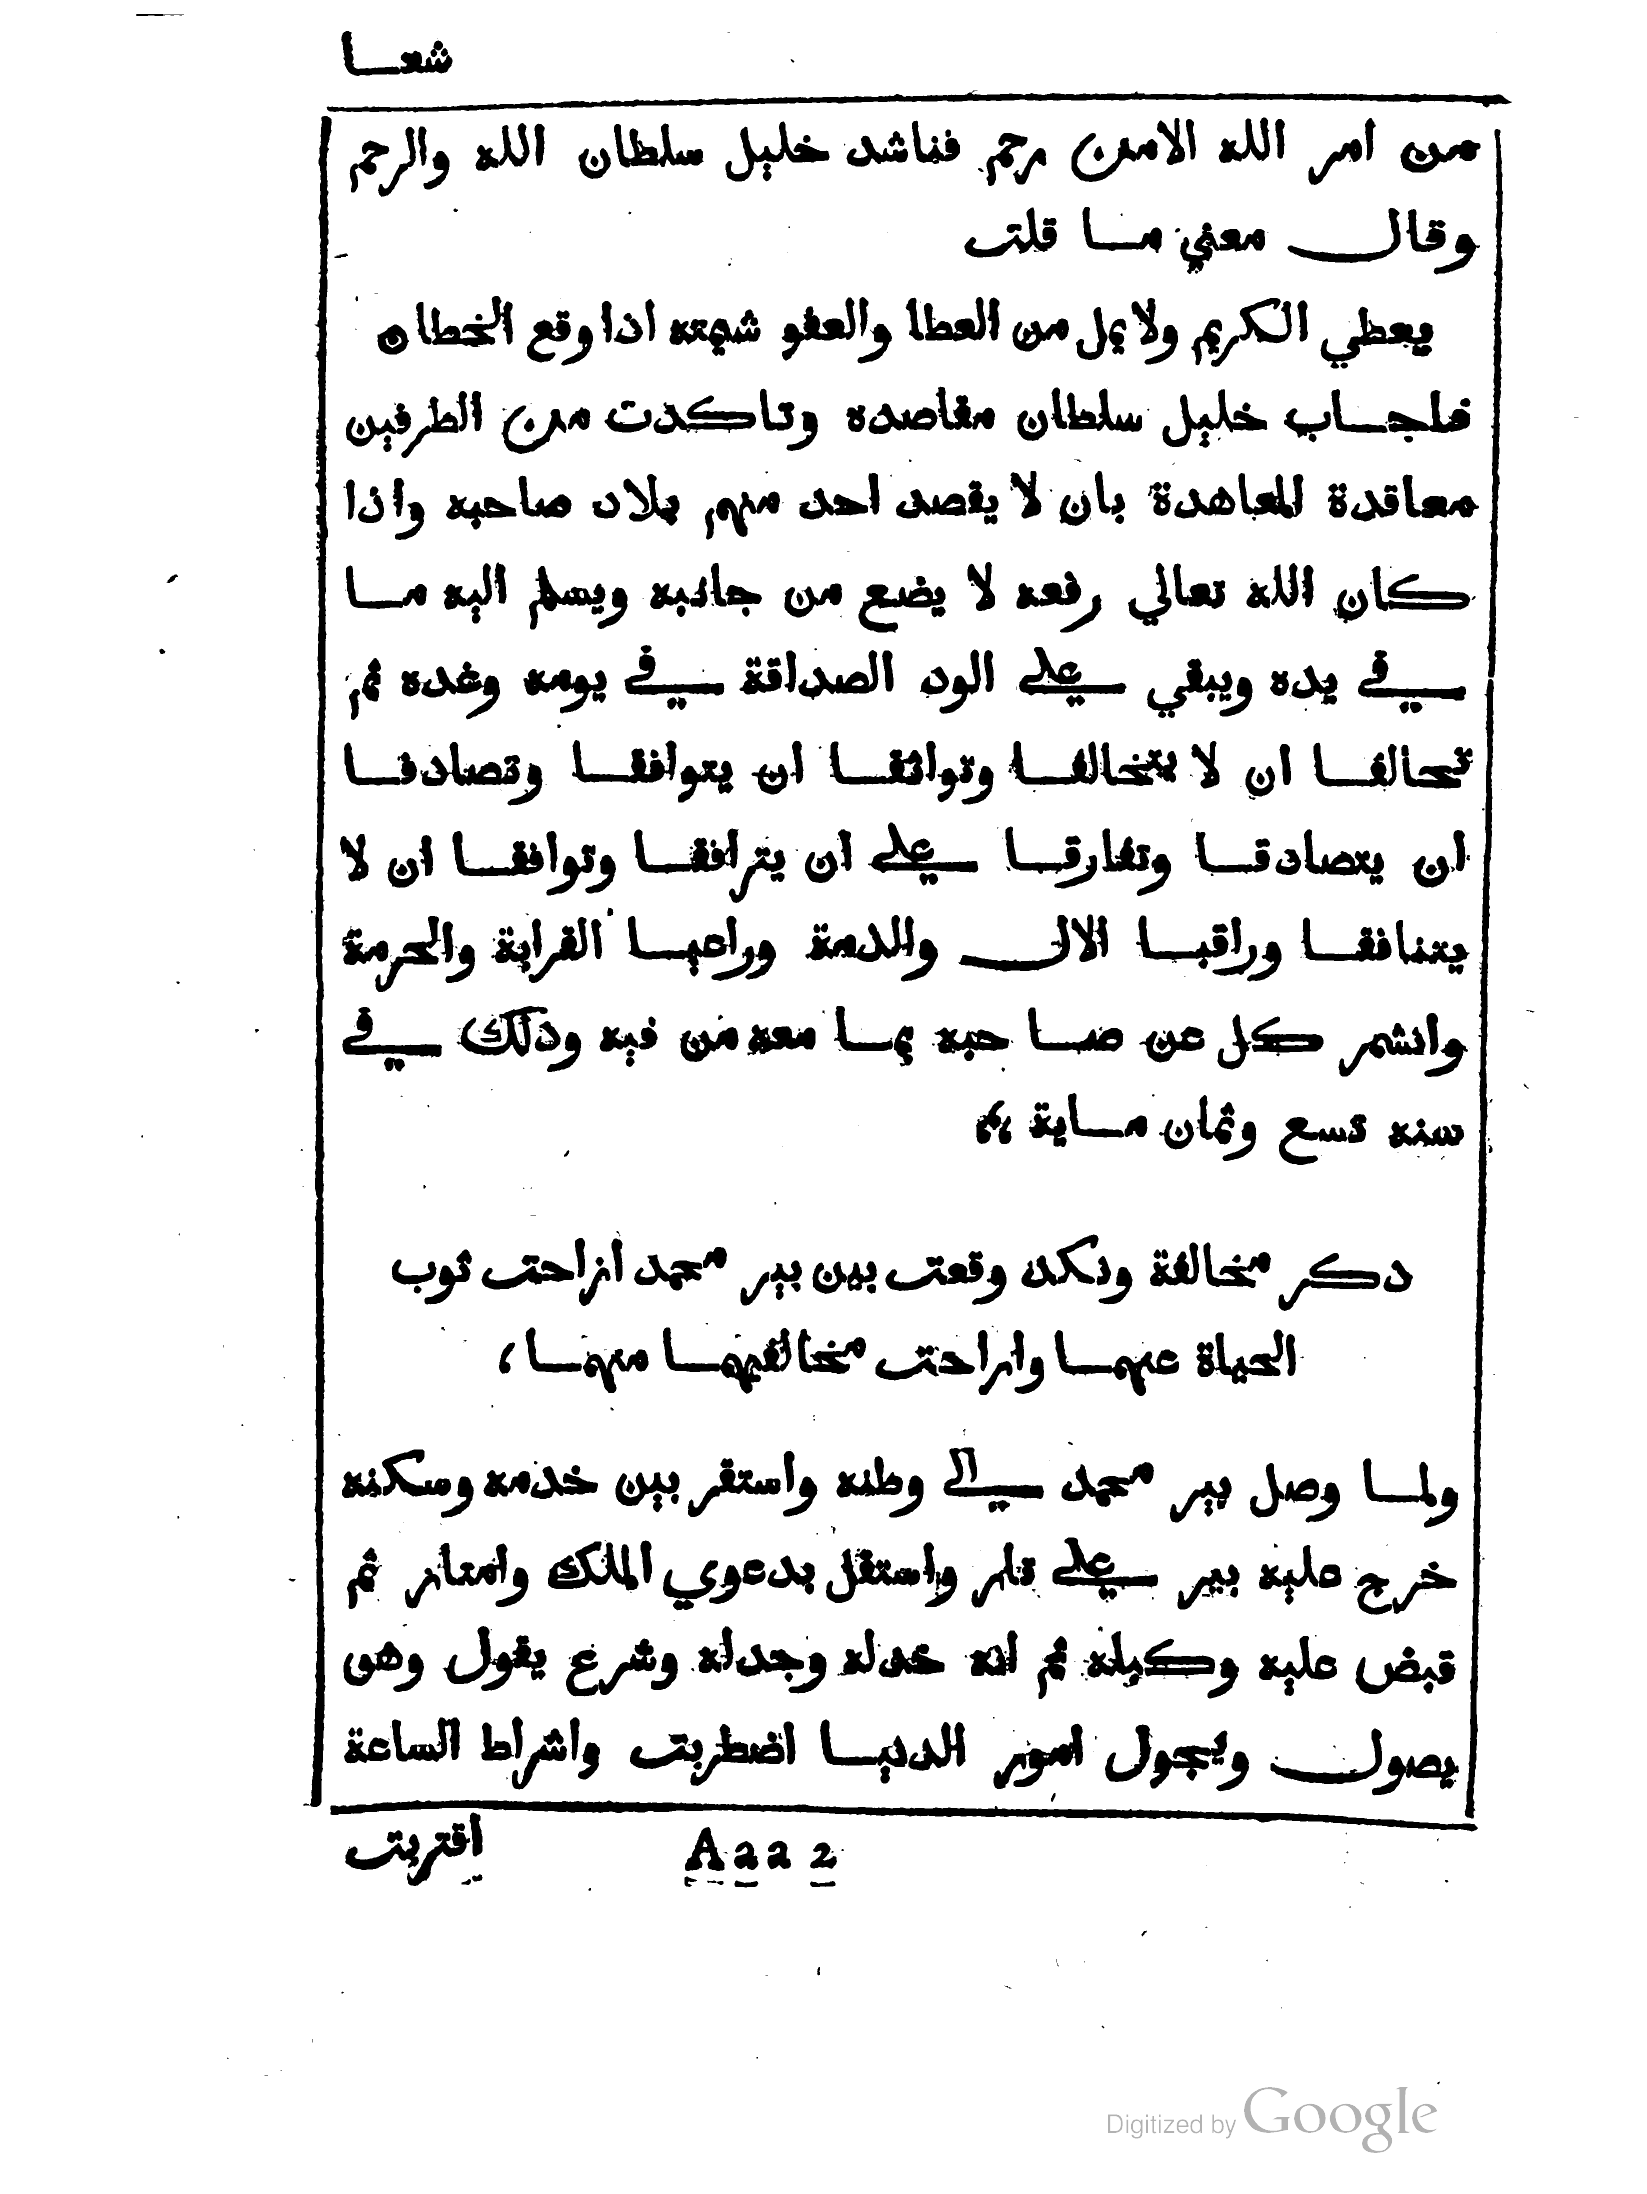 شعا
من امر الله الا من رحم فناشد خليل سلطان الله والرحم
وقال معني ما قلت
يعطي الكريم ولا يمل من العطا والعفو شيمته اذا وقع الخطا ه
فاجاب خليل سلطان مقاصده وتاكدت من الطرفين
معاقدة المعاهدة بان لا يقصد احد منهم بلاد صاحبه واذا
كان الله تعالي رفعه لا يضع من جانبه ويسلم اليه ما
في يده ويبقي علي الود الصداقة في يومه وغده ثم
تحالفا ان لا يتخالفا وتواثقا ان يتوافقا وتصادفا
ان يتصادقا وتفارقا علي ان يترافقا وتوافقا ان لا
يتنافقا وراقبا الال والدمة وراعيا القرابة والحرمة
وانشمر كل عن صا حبه بما معه من فيه ودلك في
سنه تسع وثمان ماية
دكر مخالفة ونكد وقعت بين بير محمد ازاحت ثوب
الحياة عنهما وازاحت مخالفيهما منهما ،
ولما وصل بير محمد الي وطنه واستقر بين خدمه وسكنه
خرج عليه بير علي تاز واستقل بدعوي الملك وامتاز ثم
قبض عليه وكبله ثم انه خدله وجدله وشرع يقول وهو
يصول ويجول امور الدنيا اضطربت واشراط الساعة
اقتربت
A a a 2
Digitized by Google